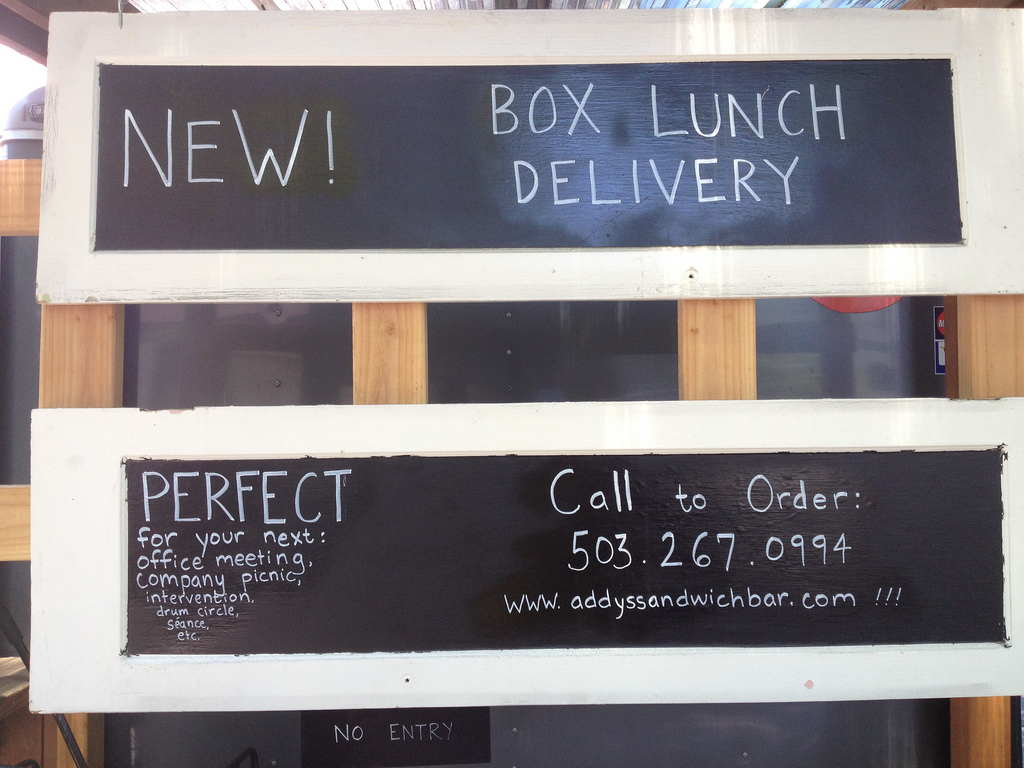 NEW!
BOX LUNCH
DELIVERY
PERFECT
for your next:
office meeting,
company picnic,
intervention,
drum circle,
séance,
etc.
Call to Order:
503.267.0994
www.addyssandwichbar.com !!!
NO ENTRY